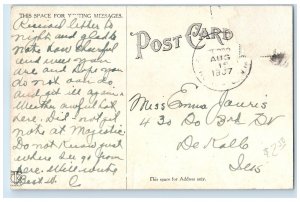 THIS SPACE FOR WRITING MESSAGES.
Received letter to
night and glad to
note how cheerful
and well you
are and hope you
do not over do
and get ill again
Weather awful hot
here. Did not get
note at Majestic
Do not know just
where I'll go from
here. Will write
POST CARD
AUG
1937
Miss Enna
430 So 3rd St
De Kalb
Ill
$2.00
This space for Address only.